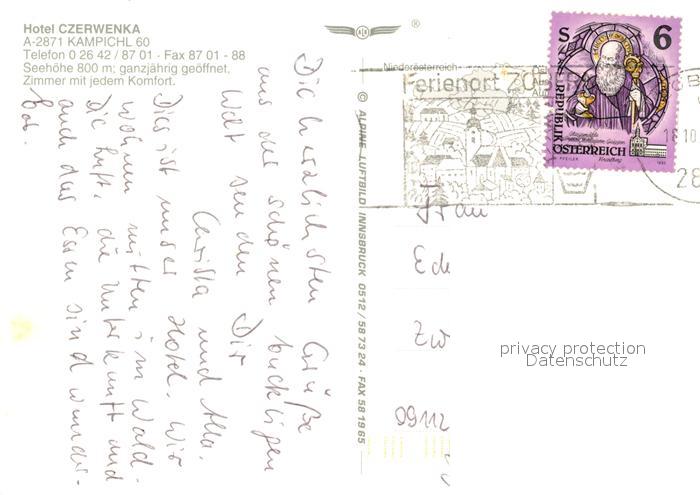 Hotel CZERWENKA
A-2871 KAMPICHL 60
Telefon 0 26 42 / 87 01 · Fax 87 01 - 88
Seehöhe 800 m; ganzjährig geöffnet,
Zimmer mit jedem Komfort.
®
Die herzlichsten Grüße
aus der schönen buckligen
Welt senden Dir
Christa und
Dies ist unser Hotel. Wir
wohnen mitten im Wald.
Die Luft, die Unterkunft und
auch das Essen sind wunder-
bar.
© ALPINE LUFTBILD INNSBRUCK 0512 / 58 73 24 · FAX 58 19 65
Niederösterreich
Ferienort
S 6
REPUBLIK
ÖSTERREICH
18.10
28
Frau
Ede
Zw
09112
privacy protection
Datenschutz